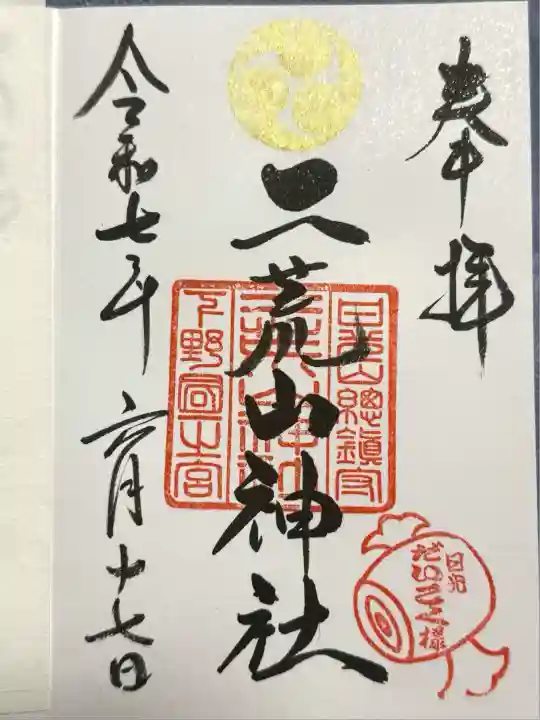 奉拝
日光山總鎮守
二荒山神社
下野國一之宮
二荒山神社
日光
だいこく様
令和七年六月十七日